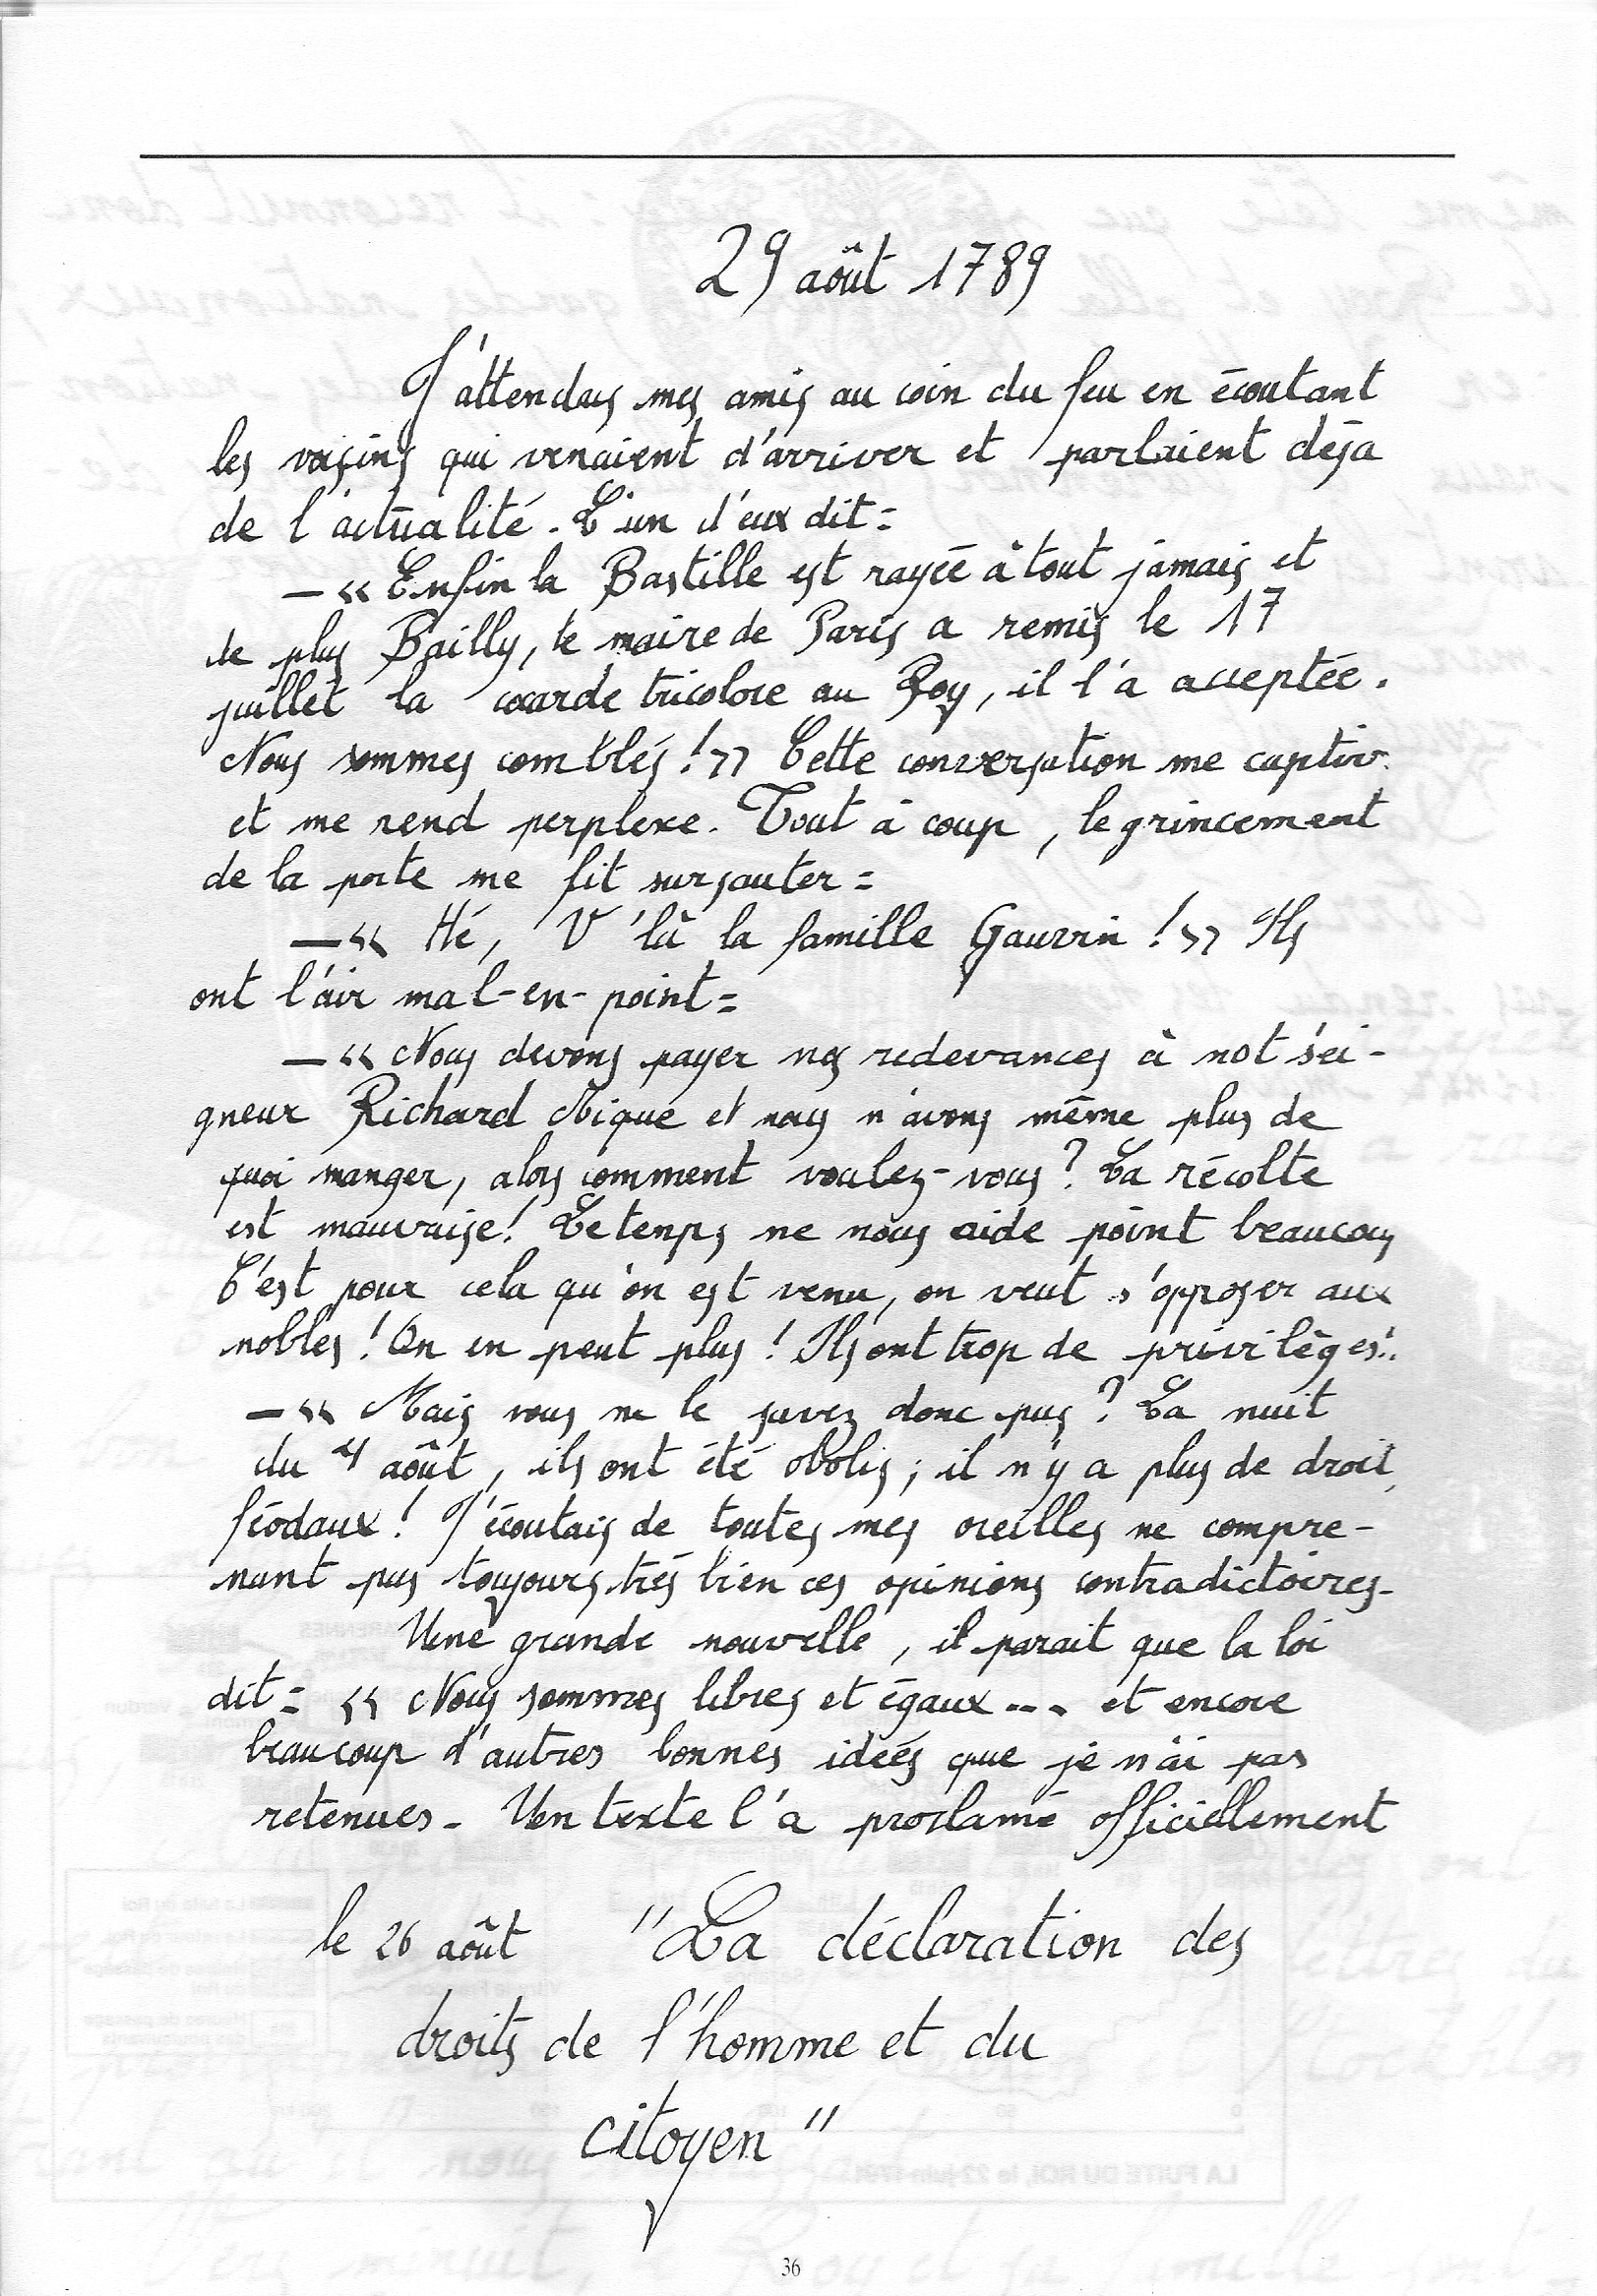 29 août 1789
J'attendais mes amis au coin du feu en écoutant
les voisins qui venaient d'arriver et parlaient déja
de l'actualité. L'un d'eux dit :
— « Enfin la Bastille est rayée à tout jamais et
de plus Bailly, le maire de Paris a remis le 17
juillet la cocarde tricolore au Roy, il l'a acceptée.
Nous sommes comblés ! » Cette conversation me captiv
et me rend perplexe. Tout à coup, le grincement
de la porte me fit sursauter :
— « Hé, V'là la famille Gauvin ! » Ils
ont l'air mal-en-point :
— « Nous devons payer nos redevances à not' sei-
gneur Richard Mique et nous n'avons même plus de
quoi manger, alors comment voulez-vous ? La récolte
est mauvaise ! Le temps ne nous aide point beaucoup
C'est pour cela qu'on est venu, on veut s'opposer aux
nobles ! On en peut plus ! Ils ont trop de privilèges !
— « Mais vous ne le savez donc pas ? La nuit
du 4 août, ils ont été abolis ; il n'y a plus de droit
féodaux ! J'écoutais de toutes mes oreilles ne compre-
nant pas toujours très bien ces opinions contradictoires.
Une grande nouvelle, il parait que la loi
dit : « Nous sommes libres et égaux ... et encore
beaucoup d'autres bonnes idées que je n'ai pas
retenues. Un texte l'a proclamé officiellement
le 26 août "La déclaration des
droits de l'homme et du
citoyen"
36